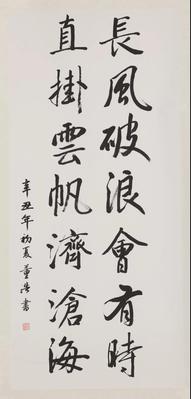 長風破浪會有時
直掛雲帆濟滄海
辛丑年初夏董浩書